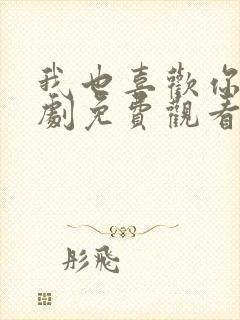 我也喜歡你
劇免費觀看
彤飛